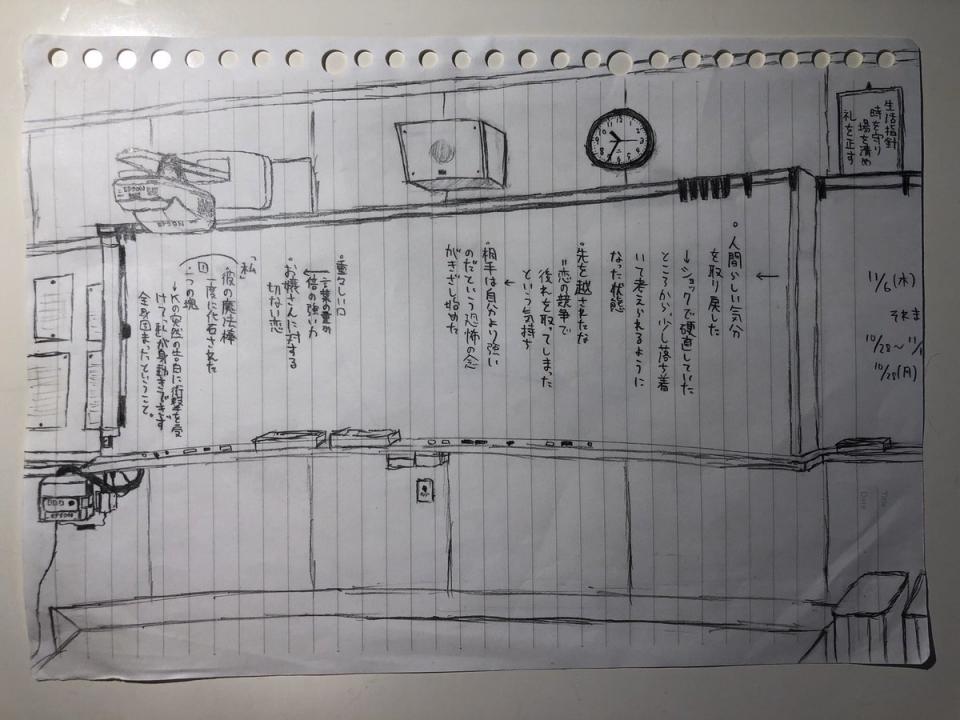 生活指針
時を守り
場を清め
礼を正す
11/6(水)
それま
10/28〜11/1
10/28(月)
。人間らしい気分
を取り戻した
→ショックで硬直していた
ところから、少し落ち着
いて考えられるように
なった状態
・先を越されたな
=恋の競争で
後れを取ってしまった
という気持ち
・相手は自分より強い
のだという恐怖の念
がきざし始めた
・重々しい口
→言葉の重み
倍の強い力
・お嬢さんに対する
切ない恋
「私」
・彼の魔法棒
一度に化石された
・一つの塊
→Kの突然の告白に衝撃を受
けて、私が身動きできず
全身固まったということ。
12
1
2
3
4
5
6
7
8
9
10
11
EPSON
EPSON
EPSON
Title
Date